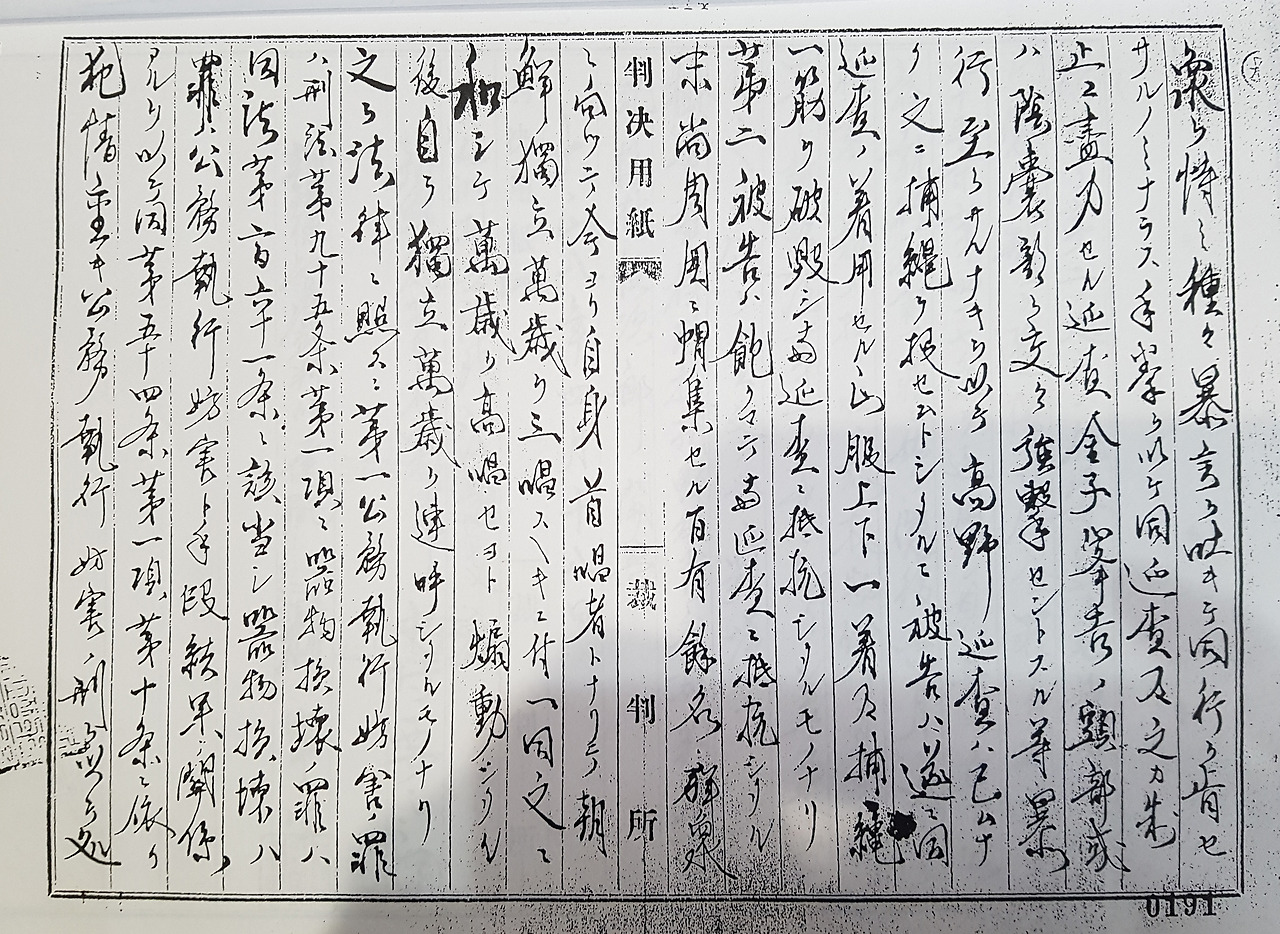 衆ヲ恃ミ種々暴言ヲ吐キテ同行ヲ肯セ
サルノミナラス手拳ヲ以テ同巡査及之カ制
止ニ盡力セル巡査金子峯吉ノ頭部或
ハ陰嚢部ヲ交々強撃セントスル等暴
行至ラサルナキヲ以テ高野巡査ハ已ムナ
ク之ニ捕縄ヲ投セントシタルニ被告ハ遂ニ同
巡査ノ着用セル山服上下一着及捕縄
一筋ヲ破毀シ両巡査ニ抵抗シタルモノナリ
第二被告ハ飽クマテ両巡査ニ抵抗シタル
末尚周囲ニ蝟集セル百有餘名ノ群衆
判決用紙
裁判所
ニ向ツテ今ヨリ自身首唱者トナリテ朝
鮮獨立萬歳ヲ三唱スヘキニ付一同之ニ
和シテ萬歳ヲ高唱セヨト煽動シタル
後自ラ獨立萬歳ヲ連呼シタルモノナリ
之ヲ法律ニ照スニ第一公務執行妨害ノ罪
ハ刑法第九十五条第一項ニ器物損壊ノ罪ハ
同法第二百六十一条ニ該当シ器物損壊ハ
罪ハ公務執行妨害ト手段結果ノ関係
アルヲ以テ同第五十四条第一項第十条ニ依リ
犯情重キ公務執行妨害ノ刑ヲ以テ処
0191